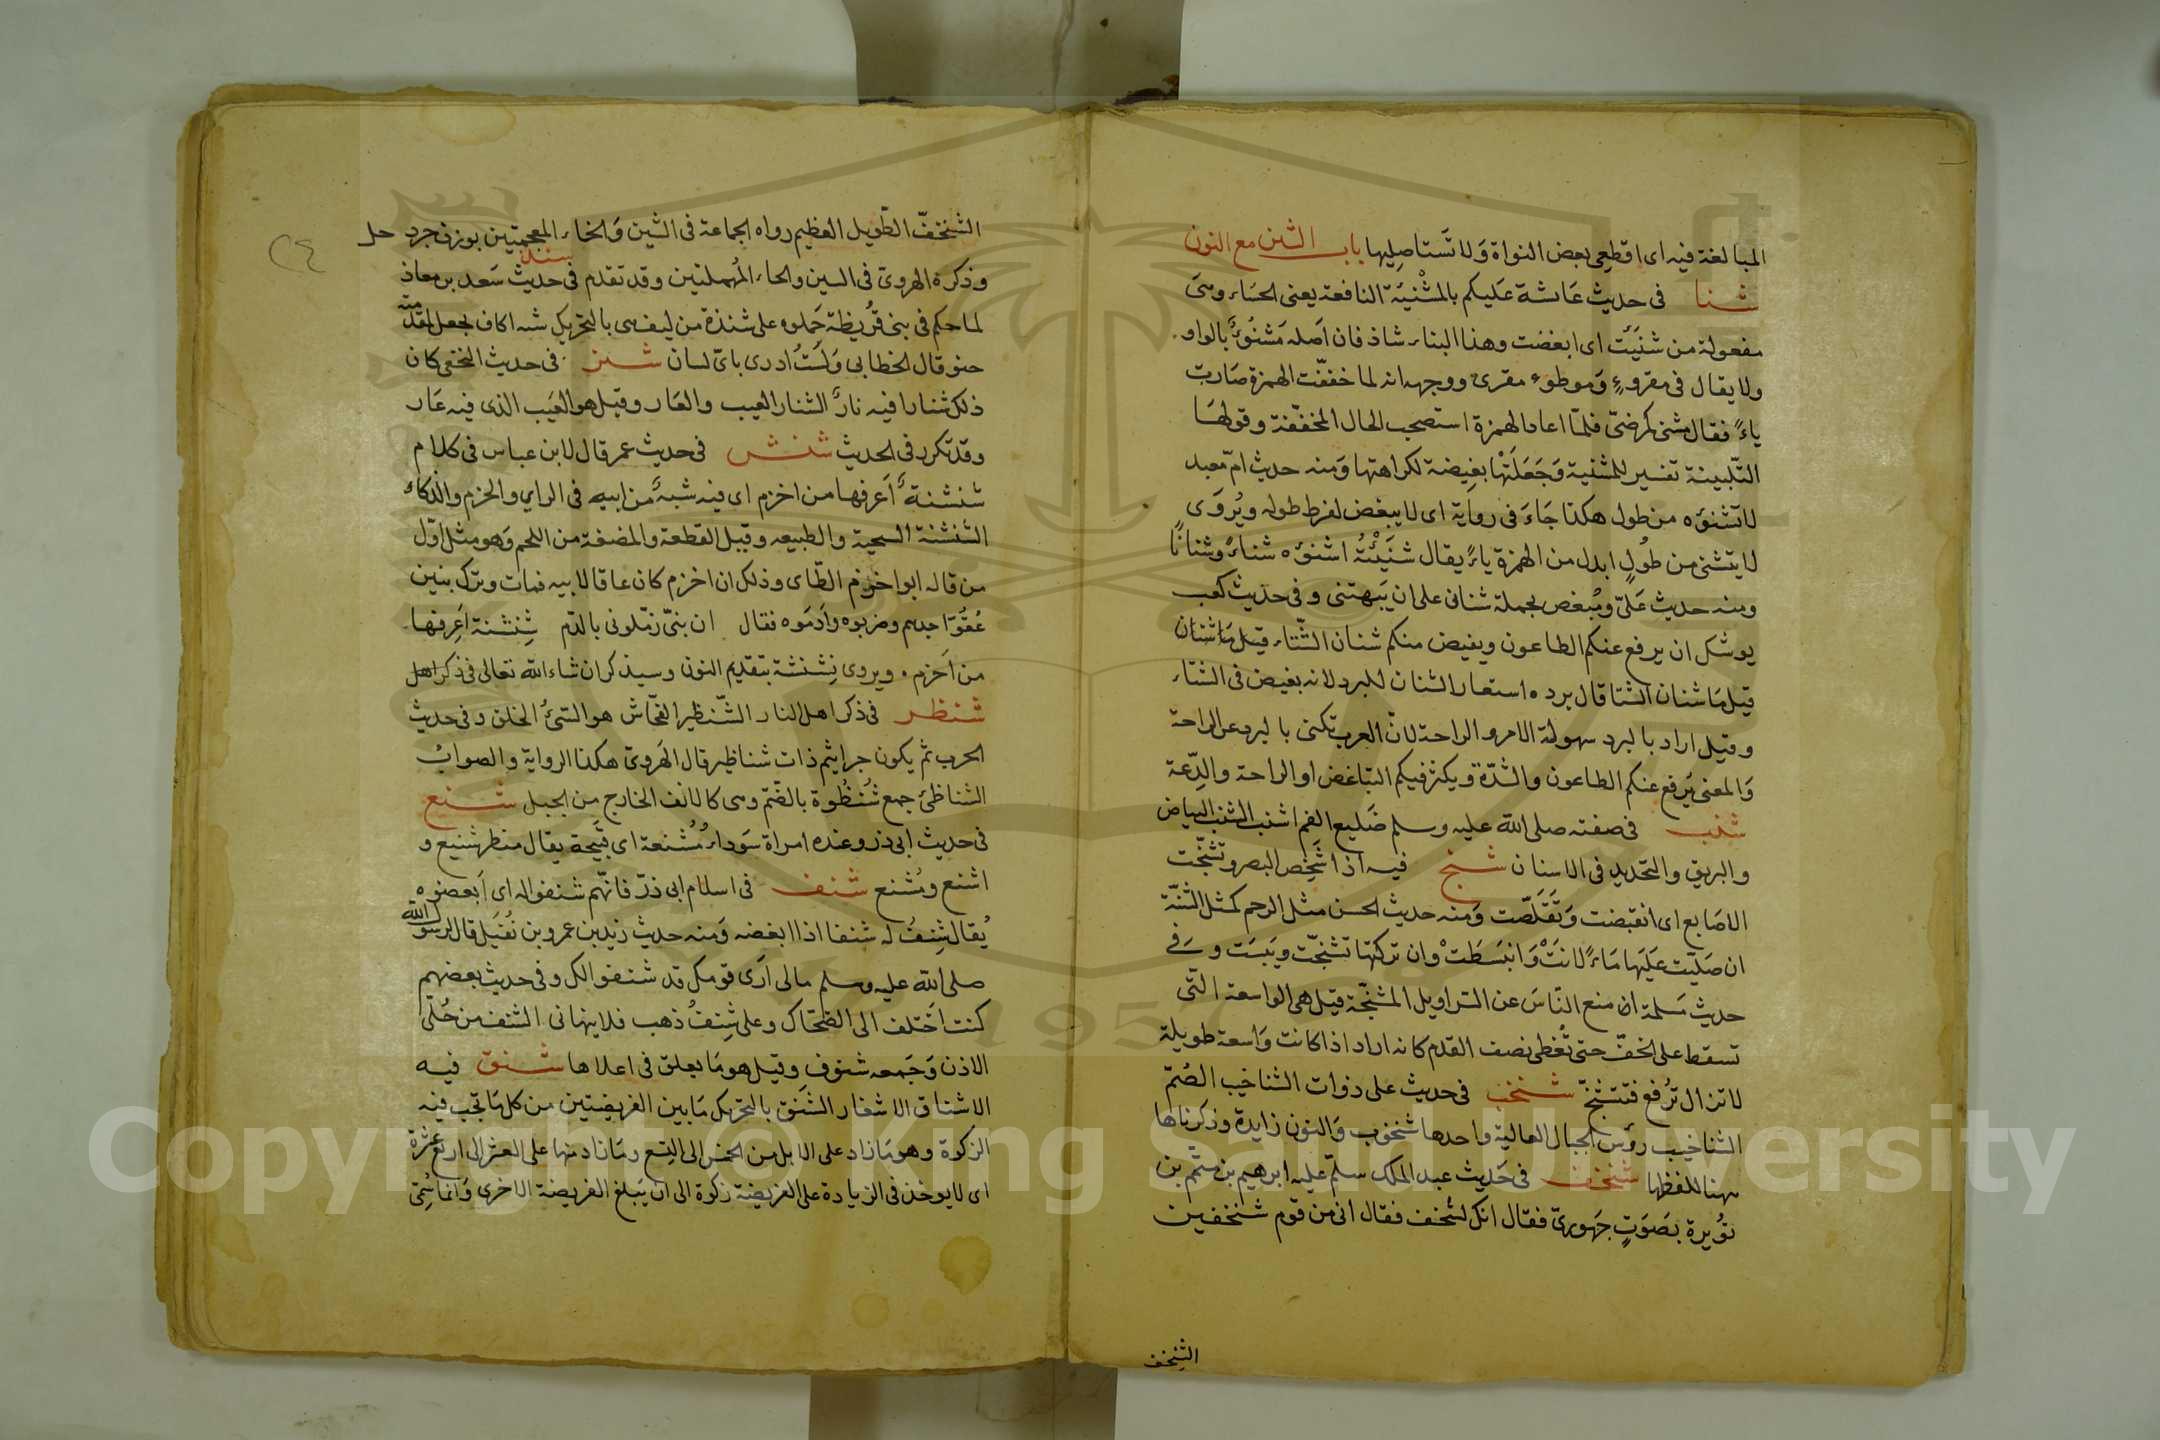 المبالغة فيه اى اقطعى بعض النواة وَلا تَستاصِليها باب الشين مع النون
شنا فى حديث عَائشة عَليكم بالمشْنيَة النافعة يعنى الحسَاء وهىَ
مفعولة من شنَيَت اى ابغضت وهذا البناء شاذ فان اَصله مَشنُوَءٌ بالواو
ولا يقال فى مقروءٍ وَموطوءٍ مقرى ووجهه انه لما خففّت الهمزة صَارت
ياءً فقال مشنى كمرضىّ فلمّا اعاد الهمزة استصحب الحال المخففّة وقولهَا
التّلبينة تفسير للمشنية وَجَعَلَتْهَا بغِيضة لكراهتها وَمنه حديث امّ معبد
لا تشنؤه من طول هكذا جَاءَ فى رواية اى لا يبغض لفرط طوله ويُروَى
لا يتشنى من طُولٍ ابدل من الهمزة ياءً يقال شنَيْئتُه اشنؤه شناءً وشنانًا
ومنه حديث عَلىّ ومُبغض يحمله شنانى على ان يَبهتنى وفى حديث كعب
يوشك ان يرفع عنكم الطاعون ويفيض منكم شنان الشّتاء قيل مَا شنان
قيل مَا شنان الشتا قال برده استعار الشنان للبرد لانه بغيض فى الشتاء
وقيل اراد بالبرد سهولة الامر والراحة لانّ العرب تكنى بالبرد عن الراحة
وَالمعنى يَرفع عنكم الطاعون والشدّة ويكثر فيكم التباغض او الراحة والدِّعة
شنب فى صفته صلى الله عليه وسلم ضَليع الفم اشنب الشنب البياض
والبريق والتحديد فى الاسنان شنج فيه اذا شَخِص البصر وتشنّجت
الاصَابع اى انقبضت وَتَقَلّصت وَمنه حديث الحسن مثل الرحم كمثل الشنّة
ان صَبَبت عَليَها مَاءً لانَتْ وَانبَسَطَتْ وان تركتها تشنجّت ويَبسَت وَفى
حديث مَسلمة انه منع النّاسَ عن السراويل المشنجّة قيل هى الواسعة التى
تسقط على الخفّ حتى تُغطى نصف القدم كانه اراد اذا كانت وَاسعة طويلة
لا تزال تُرفع فتتشنّج شنخب فى حديث على ذوات الشناخيب الصُمّ
الشناخيب رؤس الجبال العالية واحدها شنخوب وَالنون زايدة وذكرناها
ههنا للفظها شنخف فى حَديث عبد الملك سلمّ عليه ابرهيم بن متمّ بن
نوُيرة بصَوَتٍ جهَورىّ فقال انك لشنخف فقال انى من قوم شنخفين
الشنخف
الشنخفّ الطّويل العظيم رواه الجماعة فى الشين وَالخاء المعجمتين بوزن جردحل
وذكره الهروىّ فى السين والحاء المُهملتين وقد تقدم شنذ فى حديث سَعد بن معاذ
لما حكم فى بنى قرُيظة حَملوه على شنذة من ليف هى بالتحريك شبه اكاف يجعل لمقدمته
حنو قال الخطابى وَلَستُ ادرى باىّ لسان شنر فى حديث النخعى كان
ذلك شنارا فيه نارٌ الشنار العيب والعَار وقيل هو العَيب الذى فيه عَار
وقد تكرر فى الحديث شنشن فى حديث عمر قال لابن عباس فى كلام
شنشنةٌ اَعرفها من اخزم اى فيه شبهٌ من ابيه فى الراي والحزم والذكاء
الشنشنة السجية والطبيعه وقيل القطعة والمضغة من اللحم وَهو مثل اوّل
من قاله ابو اخزم الطّاى وذلك ان اخزم كان عاقا لابيه فمات وترك بنين
عَقوّا جدهم وضربوه وَاَدمَوه فقال ان بنىّ زمّلونى بالدّم شِنشنة اعَرِفها
من اَخزم ويروى نِشنشة بتقديم النون وسيذكر ان شاء الله تعالى فى ذكر اهل
شنظر فى ذكر اهل النار الشّنظير الفحّاش هو السّيئُ الخلق وفى حديث
الحرب ثم يكون جراثيم ذات شناظير قال الهَروىّ هكذا الرواية والصوابُ
الشناظى جمع شُنظُوة بالضّمّ وهى كالانف الخارج من الجبل شنع
فى حديث ابى ذر وعنده امراة سَوداء مُشنعة اى قبَيحة يقال منظر شنيع و
اشنع ومُشنع شنف فى اسلام ابى ذرّ فانّهم شنفوا له اى اَبغضوه
يُقال شنِفُ له شنفا اذا ابغضه وَمنه حديث زيد بن عمرو بن نُفَيل قال لرسول الله
صلى الله عليه وسلم مالى اَرَى قومك قد شنفوا لك وفى حديث بعضهم
كنت اختلف الى الضّحّاك وعلى شِنفُ ذهب فلا ينهانى الشنف من حُلىّ
الاذن وَجَمعه شنوف وقيل هو مَا يعلق فى اعلاها شنق فيه
الاشناق الاشغار الشَنَق بالتحريك مَا بين الفريضتين من كل مَا تجب فيه
الزكوة وهو مَا زاد على الابل من الخمس الى التِسع ومَا زاد منها على العشر الى اربع عَشرة
اى لا يوخذ فى الزيادة على الفريضة زكوة الى ان يَبلغ الفريضة الاخرى وَانما سُمّىَ